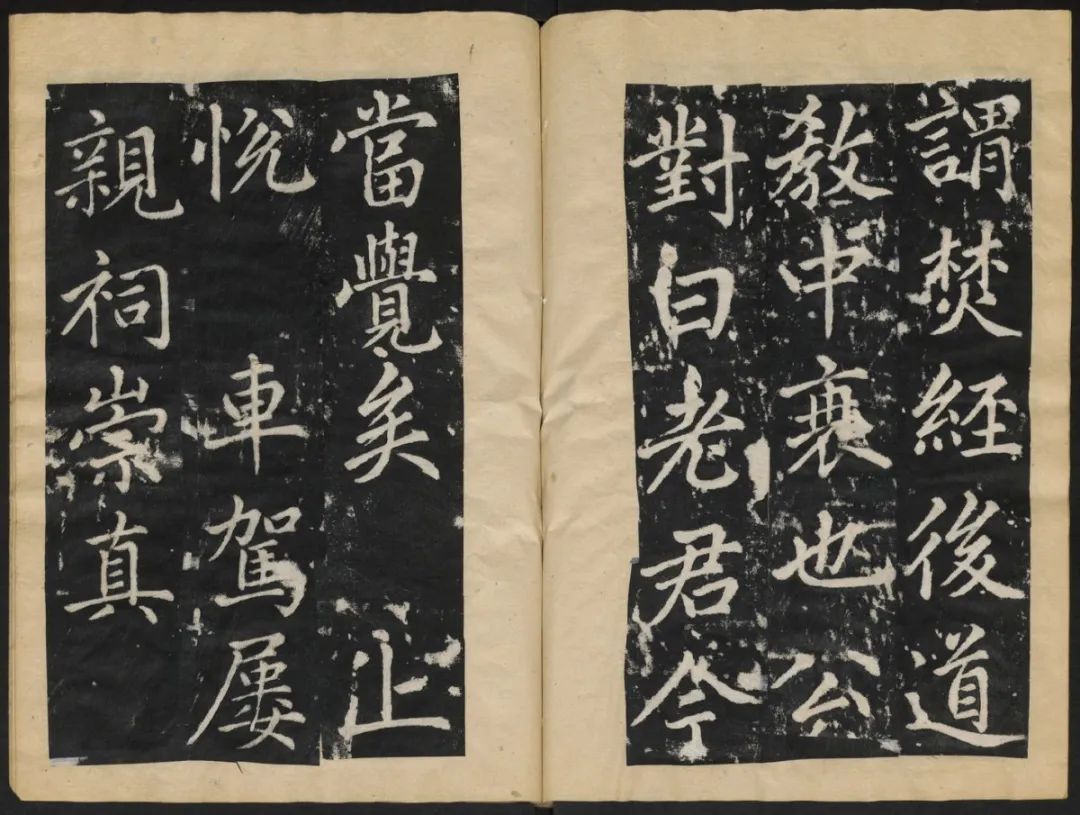 謂焚經後道
教中衰也公
對曰老君今
當覺矣 止
悅 車駕屢
親祠崇真